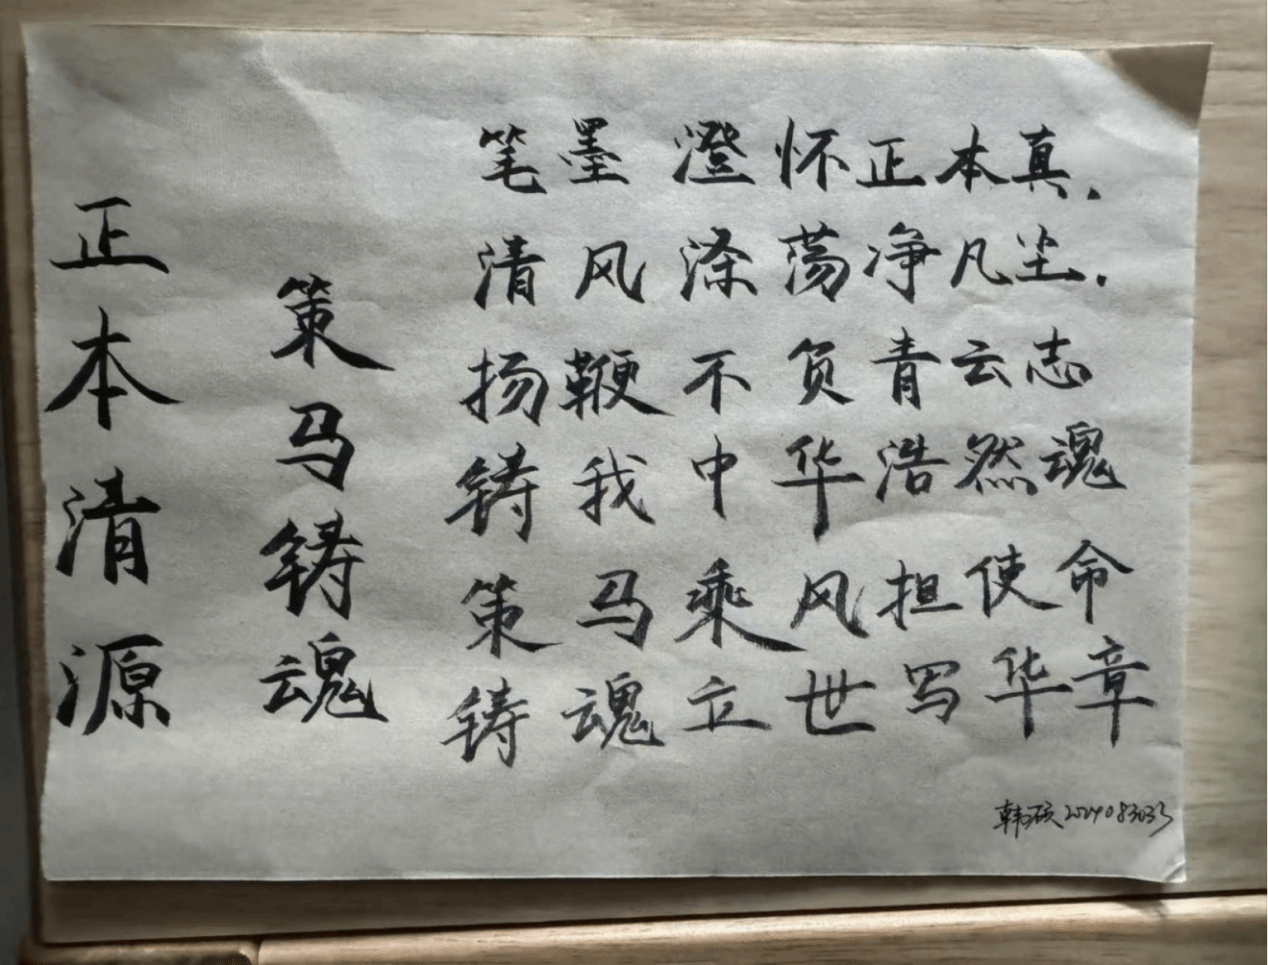 正本清源
策马铸魂
笔墨澄怀正本真.
清风涤荡净凡尘.
扬鞭不负青云志
铸我中华浩然魂
策马乘风担使命
铸魂立世写华章
韩硕